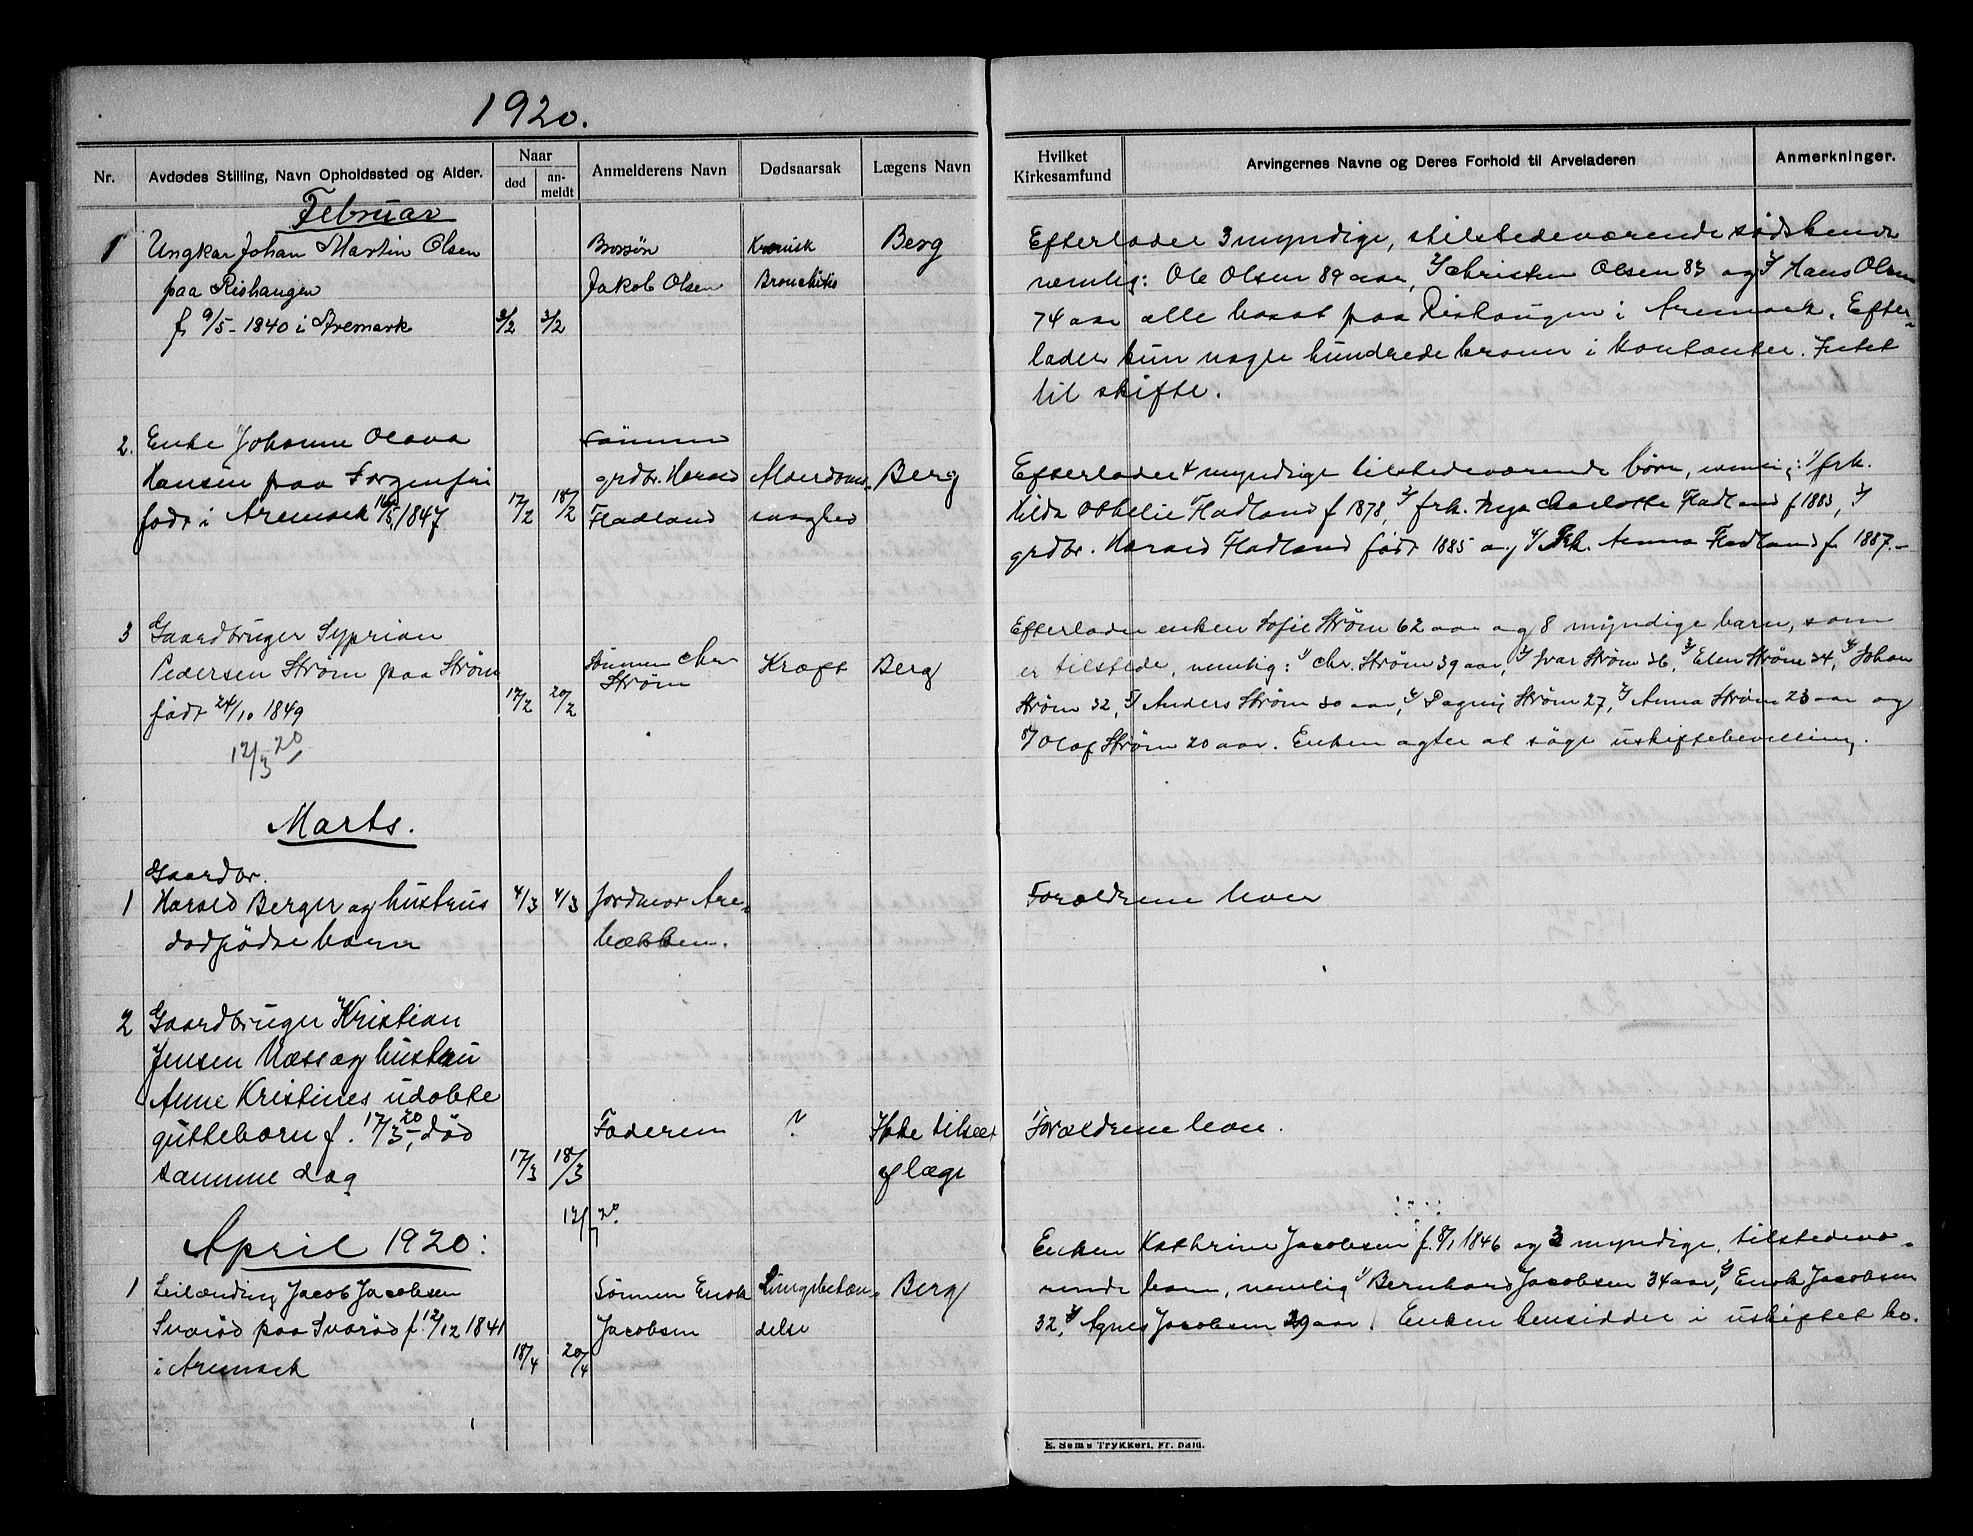 1920.
Nr.
Avdødes Stilling, Navn Opholdssted og Alder.
Naar
død
an-
meldt
Anmelderens Navn
Dødsaarsak
Lægens Navn
Hvilket
Kirkesamfund
Arvingernes Navne og Deres Forhold til Arveladeren
Anmerkninger.
Februar
1 Ungkar Johan Martin Olsen
paa Rishaugen
f 9/5-1840 i Aremark
3/2 3/2
Brorsøn
Jakob Olsen
Kronisk
Bronchitis
Berg
Efterlader 3 myndige, tilstedeværende sødskende
nemlig: Ole Olsen 89 aar, 2/ Christen Olsen 83 og 3/ Hans Olsen
74 aar alle bosat paa Rishaugen i Aremark. Efter-
lader kun nogle hundrede kroner i kontanter. Intet
til skifte.
2. Enke Johanne Olava
Hansen paa Sorgenfri
født i Aremark 1847
17/2 18/2
Sønnen
grdbr. Harald
Fladland
Alderdoms-
svaghed
Berg
Efterlader 4 myndige tilstedeværende børn, nemlig: 1/ frk.
Hilda Othelie Fladland f 1878, 2/ frk. Charlotte Fladland f 1883, 3/
grdbr. Harald Fladland født 1885 og 4/ Frk. Anna Fladland f. 1887.-
3 Gaardbruger Syprian
Pedersen Strøm paa Strøm
født 24/10 1849
12/3 20
17/2 20/2
Sønnen Chr
Strøm
Kræft
Berg
Efterlader enken Sofie Strøm 62 aar og 8 myndige barn, som
er tilstede, nemlig: 1/ Chr. Strøm 39 aar, 2/ Ivar Strøm 36, 3/ Elen Strøm 34, 4/ Johan
Strøm 32, 5/ Anders Strøm 30 aar, 6/ Dagny Strøm 27, 7/ Anna Strøm 23 aar og
8/ Olaf Strøm 20 aar. Enken agter at søge uskiftebevilling.
Marts.
Gaardbr.
1 Harald Berger og hustrus
dødfødte barn
4/3 4/3
Jordmor Are-
bækken.
Forældrene lever
2 Gaardbruger Kristian
Jensen Næss og hustru
Anne Kristines udøbte
guttebarn f. 17/3 20, død
samme dag
17/3 18/3
Faderen
?
Ikke tilseet
af læge
Forældrene lever.
April 1920:
1 Leilænding Jacob Jacobsen
Svarød paa Svarød f. 12/12 1841
i Aremark
18/4 20/4
Sønnen Enok
Jacobsen
Lungebetæn-
delse
Berg
Enken Kathrine Jacobsen f. 8/1 1846 og 3 myndige, tilstedevæ-
rende barn, nemlig 1/ Bernhard Jacobsen 34 aar, 2/ Enok Jacobsen
32, 3/ Agnes Jacobsen 29 aar. Enken hensidder i uskiftet bo.
E. Sems Trykkeri, Fr. hald.